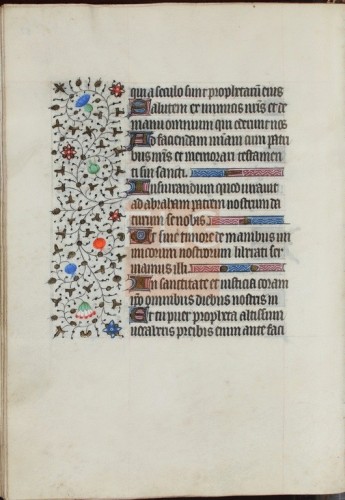 qui a seculo sunt prophetarum eius
Salutem ex inimicis nris et de
manu omnium qui oderunt nos
Ad faciendam miam cum patri
bus nris et memorari testamen
ti sui sancti.
Iusiurandum quod iurauit
ad abraham patrem nostrum da
turum se nobis.
Ut sine timore de manibus ini
micorum nostrorum liberati ser
uiamus illi.
In sanctitate et iusticia coram
ipo omnibus diebus nostris
Et tu puer propheta altissimi
uocaberis preibis enim ante faci